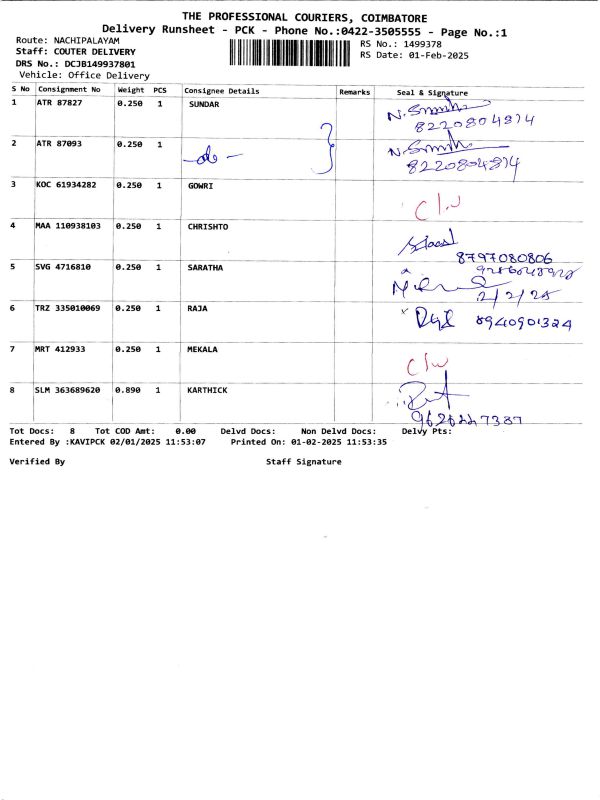 THE PROFESSIONAL COURIERS, COIMBATORE
Delivery Runsheet - PCK - Phone No.:0422-3505555 - Page No.:1
Route: NACHIPALAYAM
Staff: COUTER DELIVERY
DRS No.: DCJB149937801
Vehicle: Office Delivery
RS No.: 1499378
RS Date: 01-Feb-2025
S No Consignment No Weight PCS Consignee Details Remarks Seal & Signature
1 ATR 87827 0.250 1 SUNDAR
8220804874
2 ATR 87093 0.250 1 -do-
8220804874
3 KOC 61934282 0.250 1 GOWRI
4 MAA 110938103 0.250 1 CHRISHTO
8797080806
5 SVG 4716810 0.250 1 SARATHA
2/2/25
6 TRZ 335010069 0.250 1 RAJA 8940901324
7 MRT 412933 0.250 1 MEKALA
8 SLM 363689620 0.890 1 KARTHICK
Tot Docs: 8 Tot COD Amt: 0.00 Delvd Docs: Non Delvd Docs: Delvy Pts:
Entered By :KAVIPCK 02/01/2025 11:53:07 Printed On: 01-02-2025 11:53:35
Verified By Staff Signature